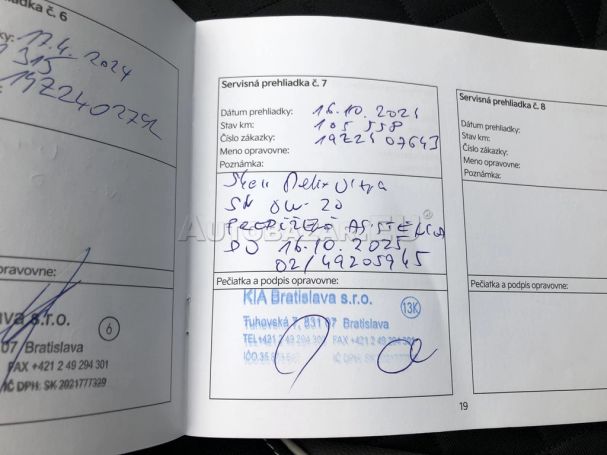 ladka č. 6
17.4. 2024
315
197240279
ravovne:
va s.r.o.
6
07 Bratislava
FAX +421 2 49 294 301
IČ DPH: SK 2021777329
Servisná prehliadka č. 7
Dátum prehliadky: 16.10. 2024
Stav km: 105 558
Číslo zákazky: 19724 07643
Meno opravovne:
Poznámka:
Shell Helix Ultra
SN 0W-20
ASISTENCIA
DO 16.10.2025
02/49205945
Pečiatka a podpis opravovne:
KIA Bratislava s.r.o.
13K
Tuhovská 7, 831 07 Bratislava
TEL+421 2 49 294 FAX +421 2 49 294 301
IČO:35 IČ DPH: SK 2021777329
19
Servisná prehliadka č. 8
Dátum prehliadky:
Stav km:
Číslo zákazky:
Meno opravovne:
Poznámka:
Pečiatka a podpis opravovne:
AUTOBAZAR.EU